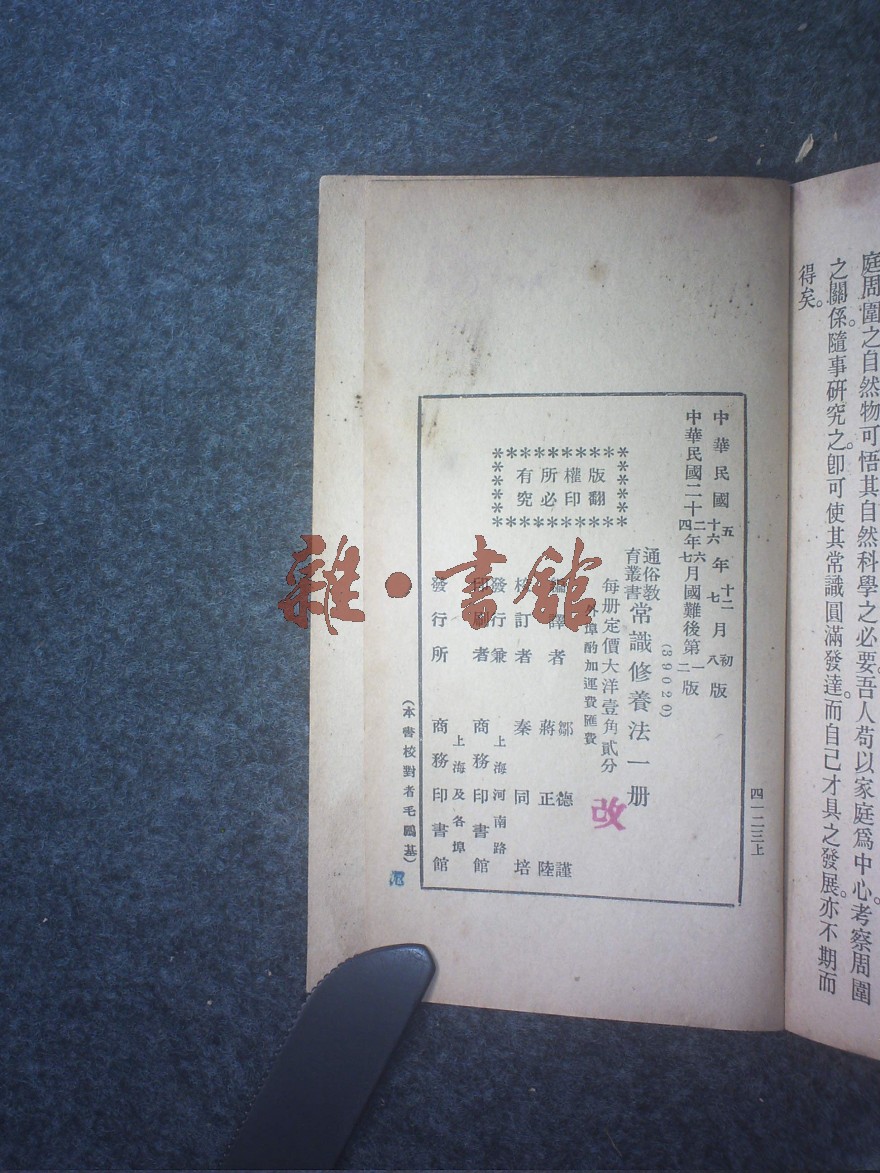 庭周圍之自然物可悟其自然科學之必要。吾人苟以家庭爲中心。考察周圍
之關係。隨事研究之。卽可使其常識圓滿發達。而自己才具之發展。亦不期而
得矣。
四一二三上
中華民國五年十二月初版
中華民國十六年七月八版
中華民國二十二年六月國難後第一版
中華民國二十四年七月國難後第二版
(39020)
通俗教育叢書
常識修養法一册
每册定價大洋壹角貳分
外埠酌加運費匯費
改
版權所有
翻印必究
編譯者 鄒德謹 蔣正陸
校訂者 秦同培
發行兼印刷者 上海河南路 商務印書館
發行所 上海及各埠 商務印書館
(本書校對者毛鵬基)
雜·書館